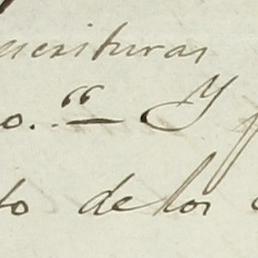 escrituras
o.."— Y
to de los